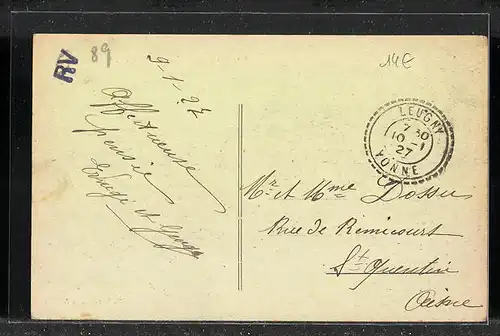 RV
89
14€
9-1-27
Affectueuse
pensée
et
LEUGNY
7 30
10 - 1
27
YONNE
Mr et Mme Dossu
Rue de Remicourt
St Quentin
Aisne